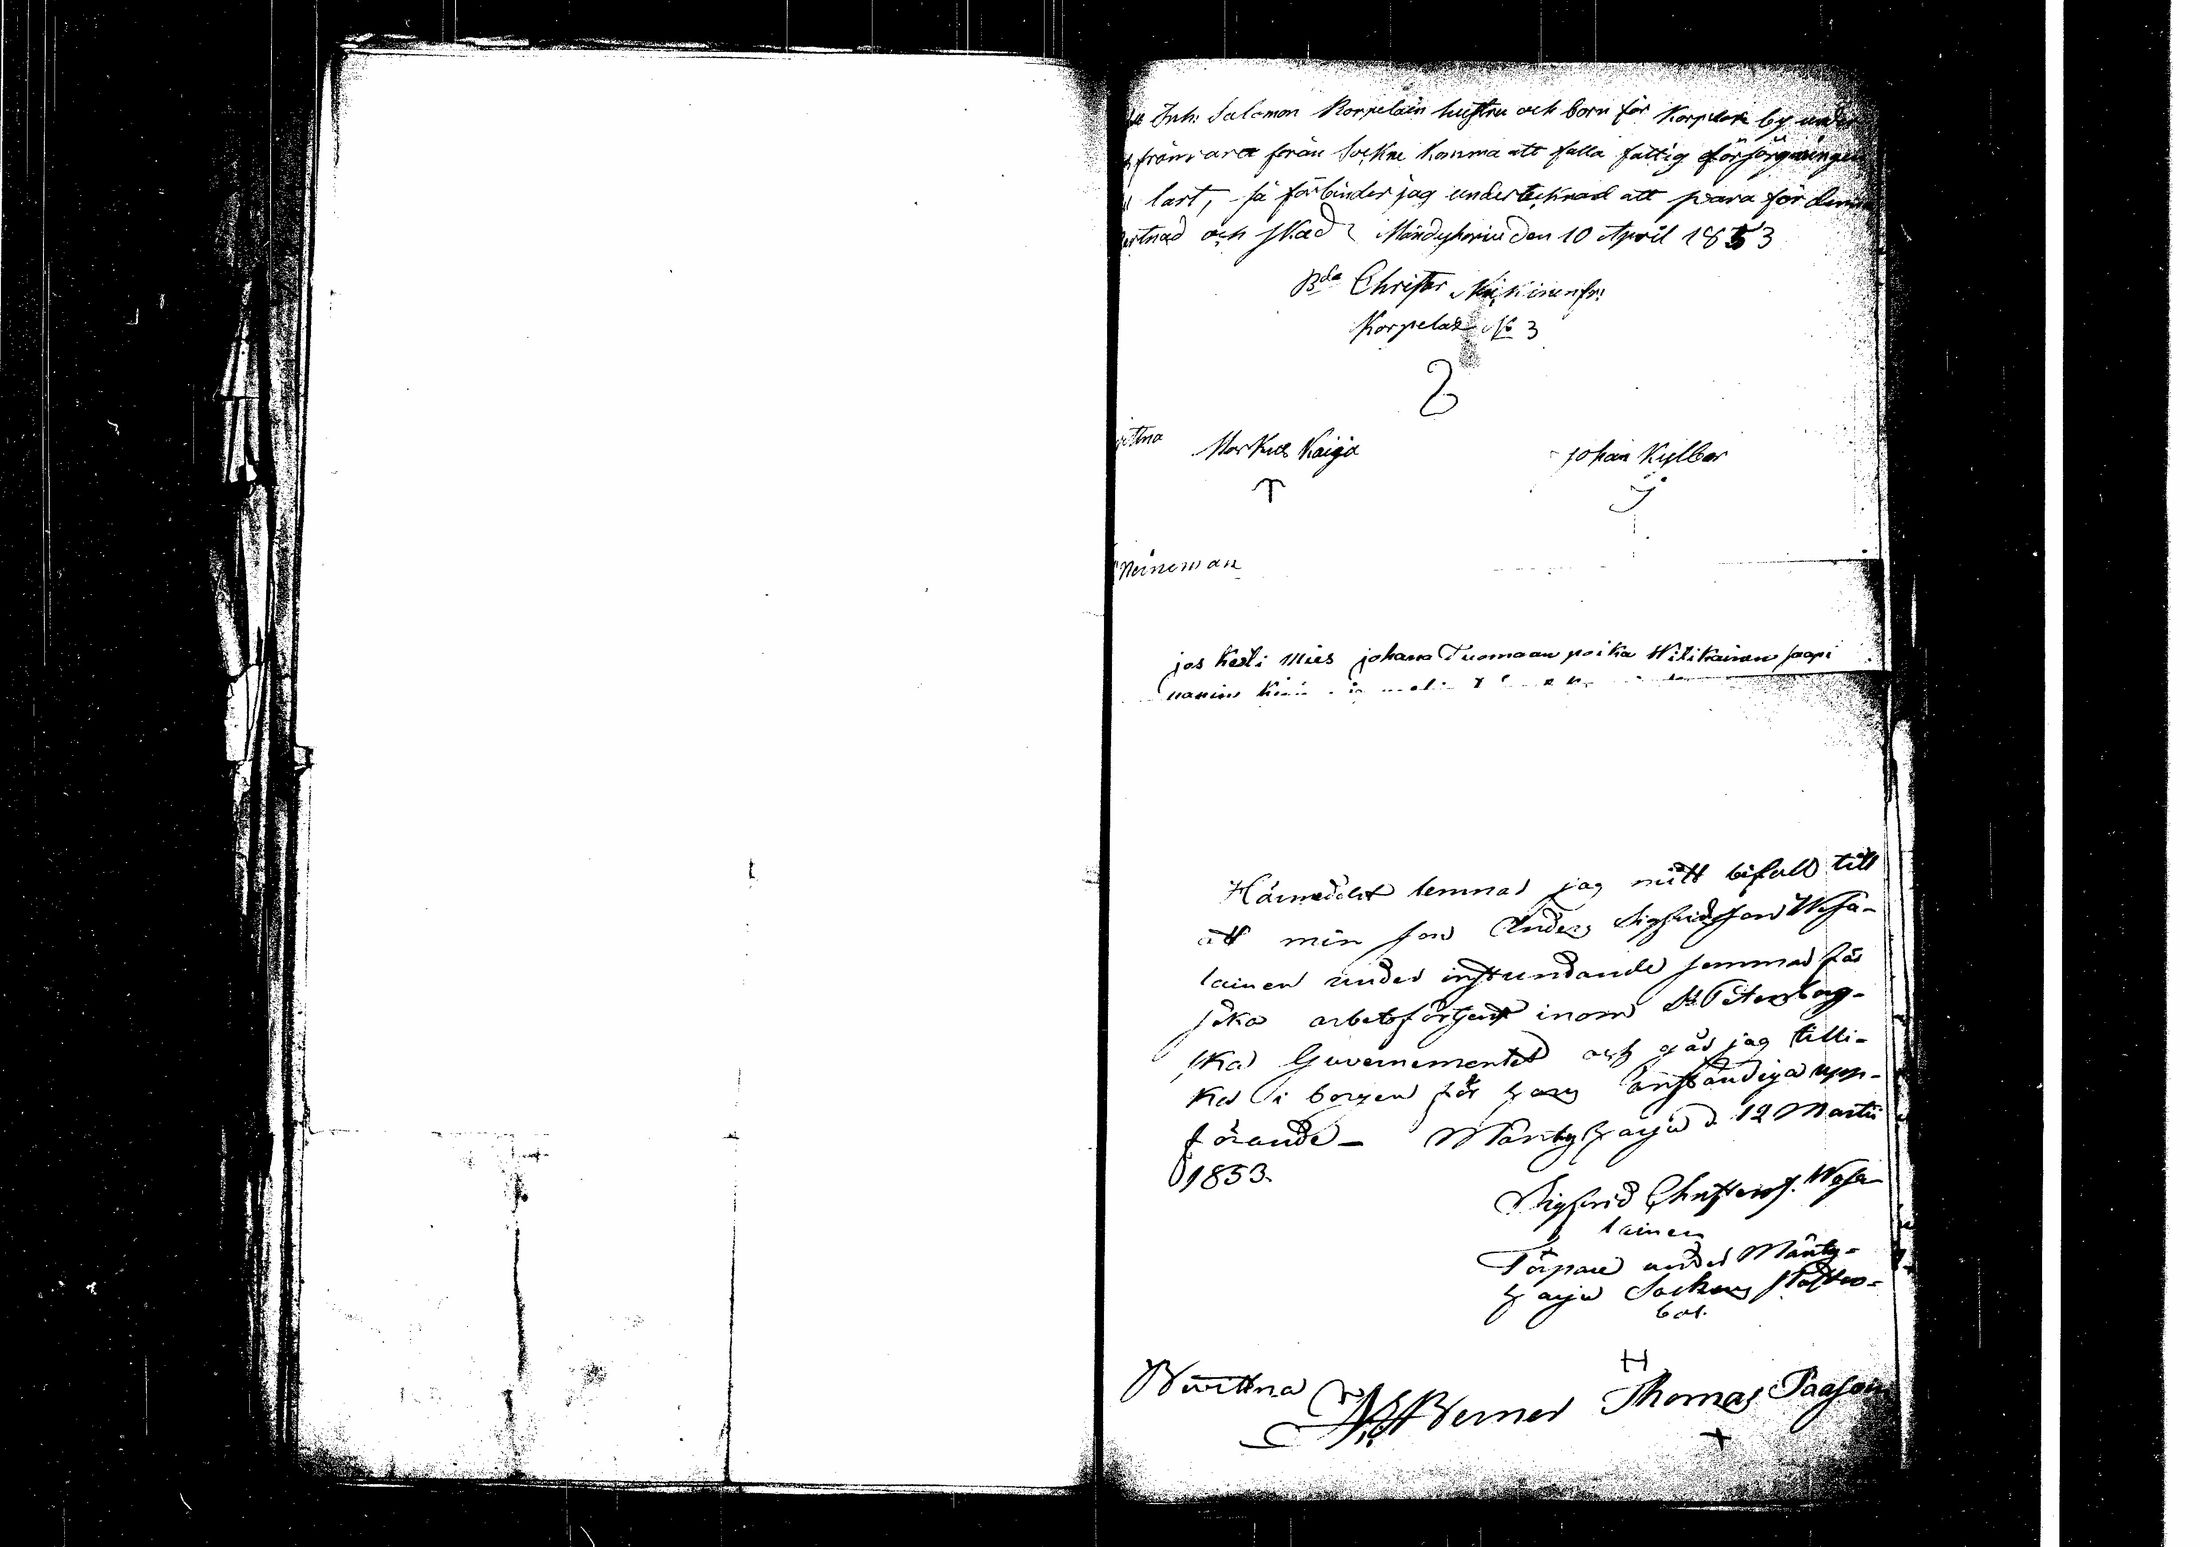 Inh: Salomon Korpelain hustru och born för Korpelax by under
frånvara från Sockne komma att falla fattig försörgningen
last, så förbinder jag undertecknad att svara för denna
och skad Mändyharju den 10 April 1853
Bde Christer
Korpelax No 3
Markus Kaija Johan Kylber
Heineman
jos Kesti mies johana Tuomaan poika Witikainen saapi
Härmedelst lemnar jag mitt bifall till
att min son Anders Sigfridsson Wesa-
lainen under instundande sommar får
söka arbetsförtjenst inom St Petersborg-
ska Guvernementet och går jag tilli-
ka i borgen för hans anständiga upp-
förande - Mäntyharju d. 12 Martii
1853.
Sigfrid Christersf. Wesa-
lainen
Torpare under Mänty-
harju Sockens
bol.
H
Bevittna Berner Thomas Paason
+